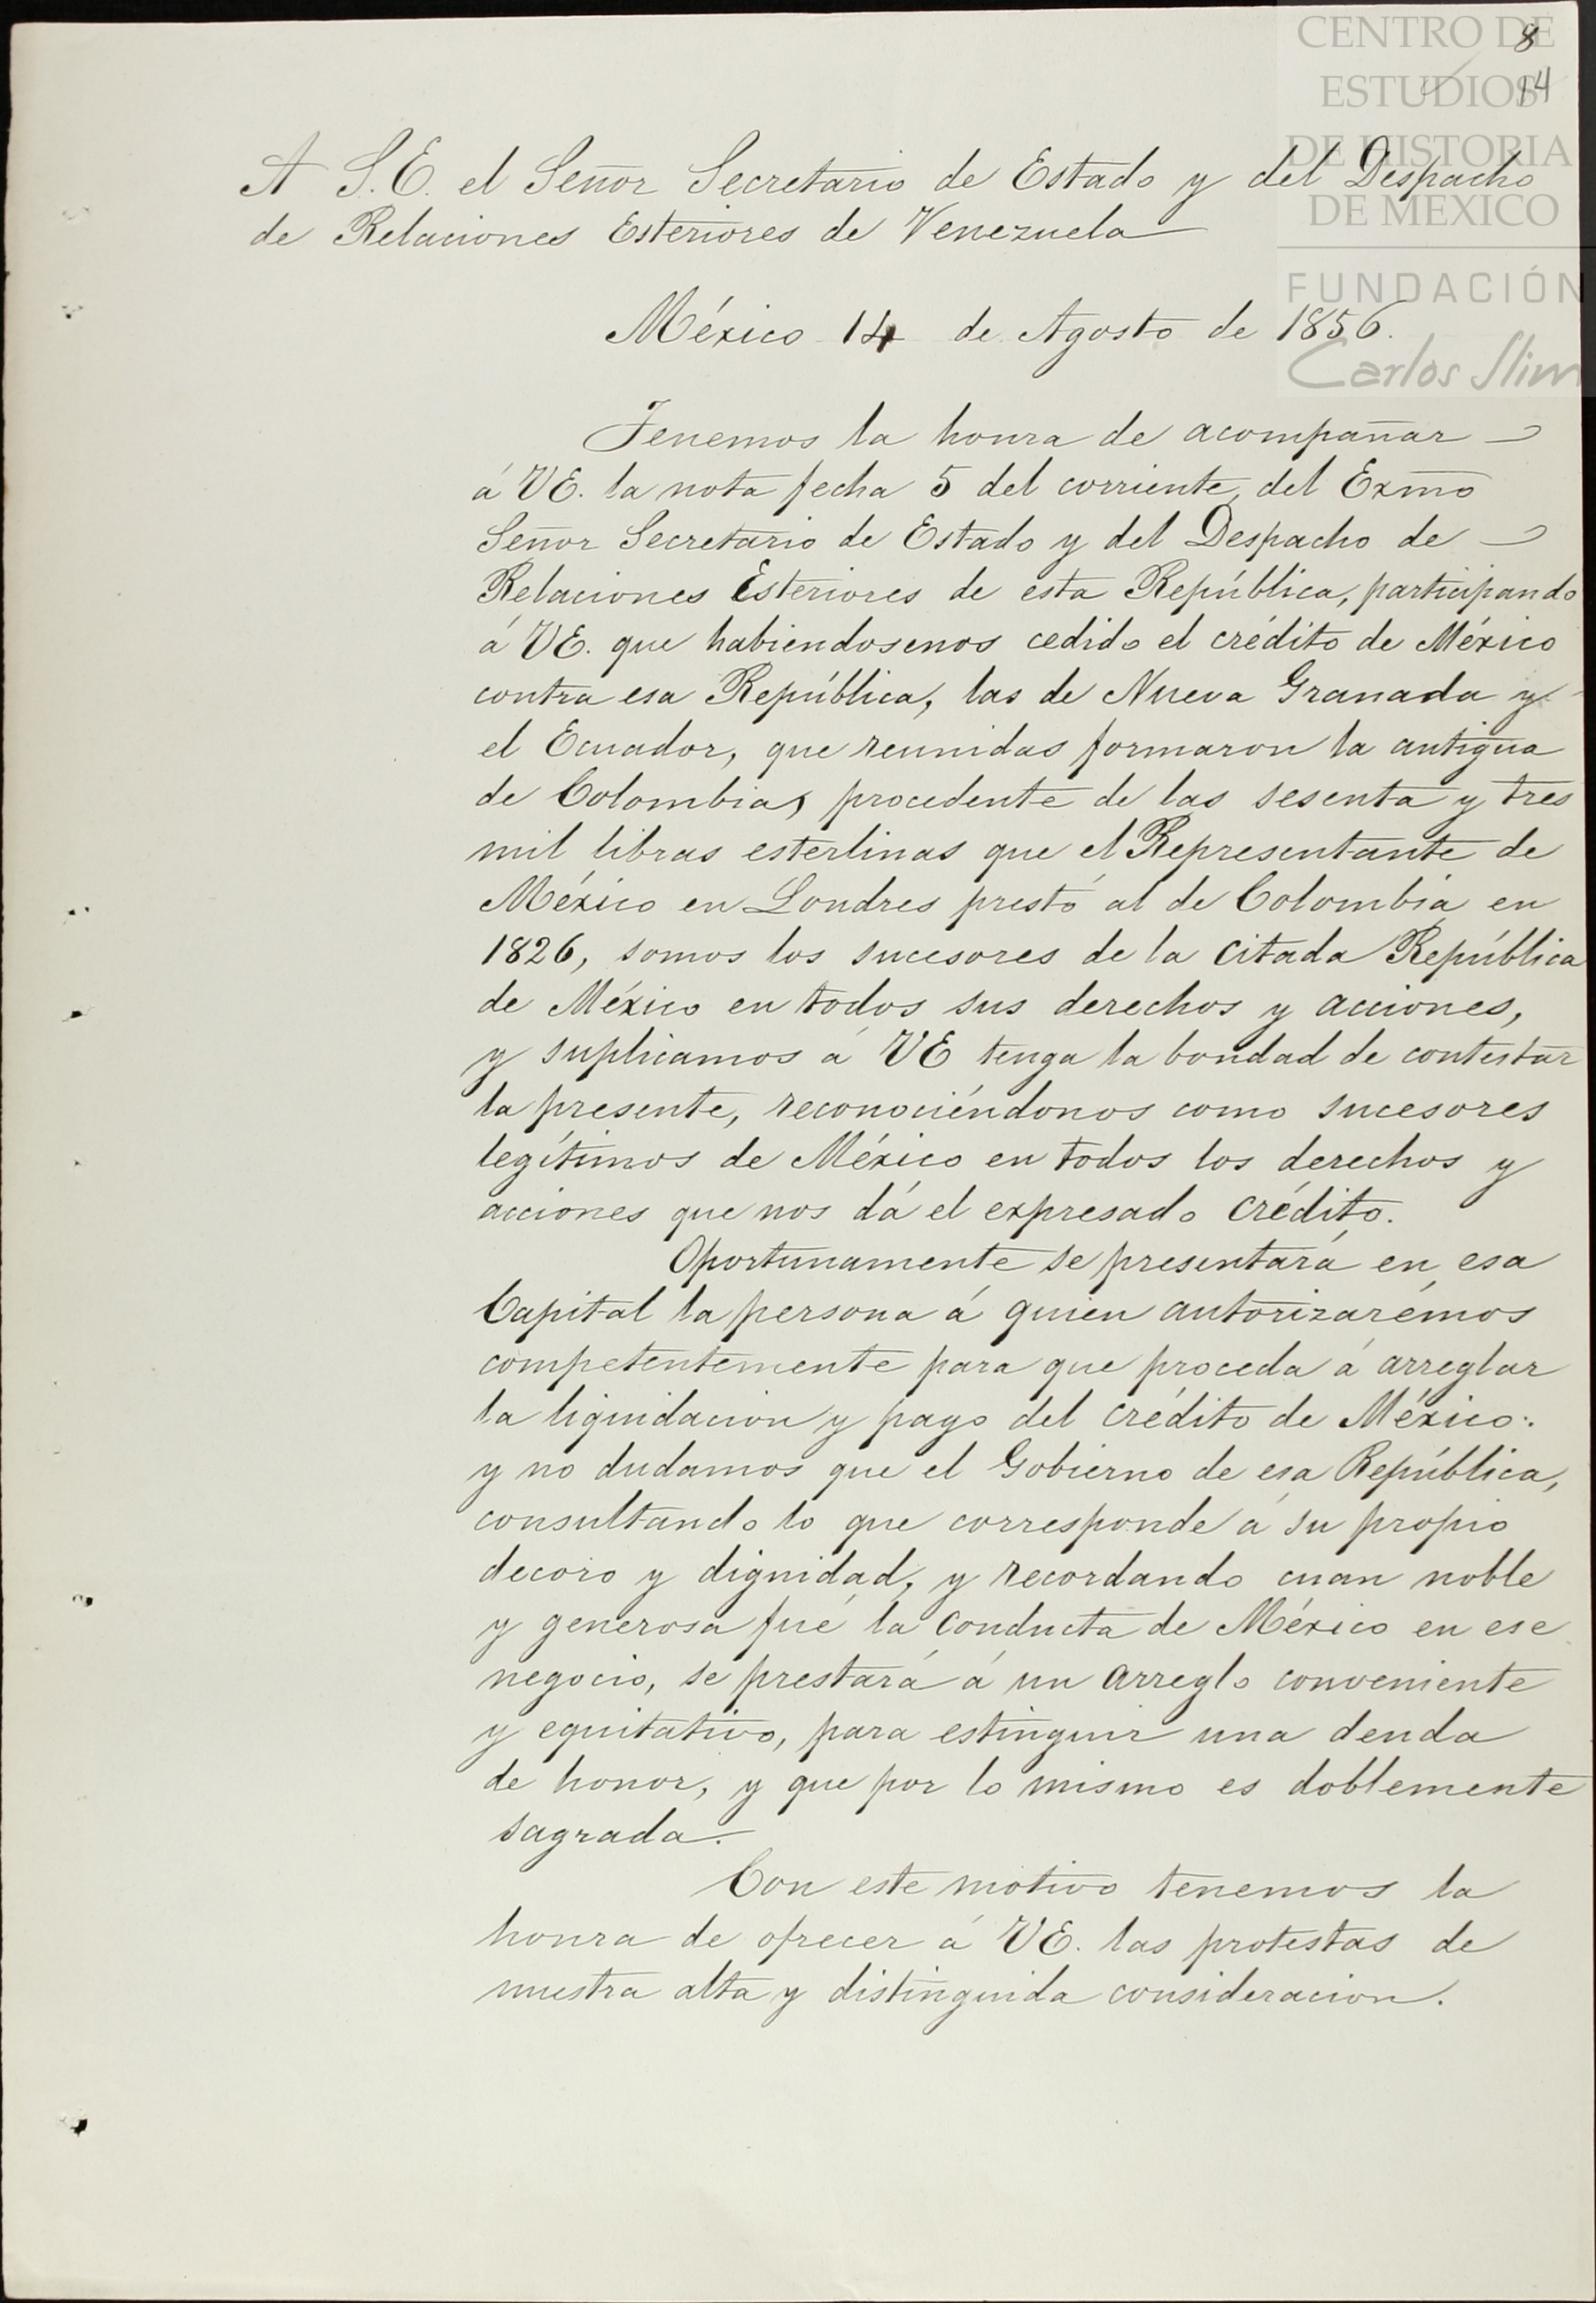 CENTRO DE
ESTUDIOS
DE HISTORIA
DE MEXICO
FUNDACIÓN
Carlos Slim
8
14
A S.E. el Señor Secretario de Estado y del Despacho
de Relaciones Esteriores de Venezuela
México 14 de Agosto de 1856.
Tenemos la honra de acompañar
á VE. la nota fecha 5 del corriente, del Exmo
Señor Secretario de Estado y del Despacho de
Relaciones Esteriores de esta República, participando
á VE. que habiendosenos cedido el crédito de México
contra esa República, las de Nueva Granada y
el Ecuador, que reunidas formaron la antigua
de Colombia, procedente de las sesenta y tres
mil libras esterlinas que el Representante de
México en Londres prestó al de Colombia en
1826, somos los sucesores de la citada República
de México en todos sus derechos y acciones,
y suplicamos á VE tenga la bondad de contestar
la presente, reconociéndonos como sucesores
legítimos de México en todos los derechos y
acciones que nos dá el expresado crédito.
Oportunamente se presentará en esa
Capital la persona á quien autorizarémos
competentemente para que proceda á arreglar
la liquidacion y pago del crédito de México:
y no dudamos que el Gobierno de esa República,
consultando lo que corresponde á su propio
decoro y dignidad, y recordando cuan noble
y generosa fué la conducta de México en ese
negocio, se prestará á un arreglo conveniente
y equitativo, para estinguir una deuda
de honor, y que por lo mismo es doblemente
sagrada.
Con este motivo tenemos la
honra de ofrecer á VE. las protestas de
nuestra alta y distinguida consideracion.